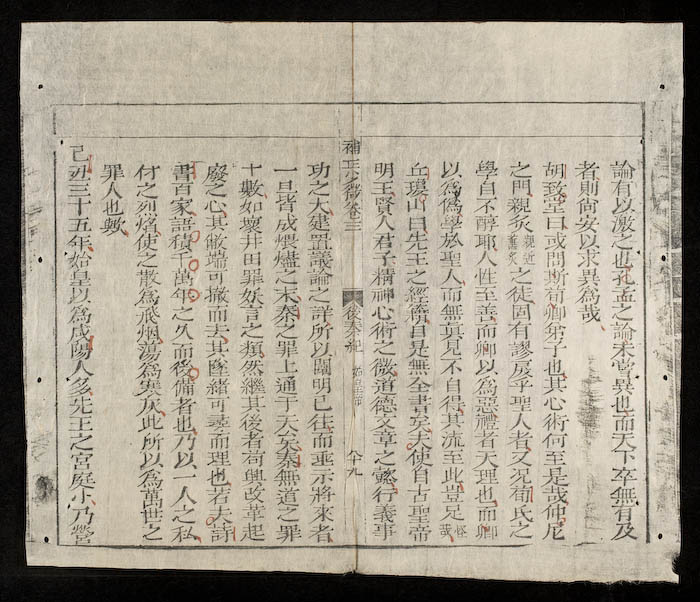 論有以激之也孔孟之論未嘗異也而天下卒無有及
者則尙安以求異為哉
胡致堂曰或問斯荀卿弟子也其心術何至是哉仲尼
之門親炙親近薰炙之徒固有謬戾乎聖人者又况荀氏之
學自不醇耶人性至善而卿以為惡禮者天理也而卿
以為僞學於聖人而無眞見不自得其流至此豈足怪哉
丘瓊山曰先王之經籍自是無全書矣夫使自古聖帝
明王賢人君子精神心術之微道德文章之懿行義事
補正少微卷三 後秦紀 始皇帝 八十九
功之大建置議論之詳所以闡明已往而垂示將來者
一旦皆成煨燼之末秦之罪上通于天矣秦無道之罪
十數如壞井田罪妖言之類然繼其後者苟興改革起
廢之心其敝端可撤而去其墜緖可尋而理也若夫詩
書百家語積千萬年之久而後備者也乃以一人之私
付之烈熖使之散為飛烟蕩為寒灰此所以為萬世之
罪人也歟
己丑三十五年始皇以為咸陽人多先王之宮庭小乃營